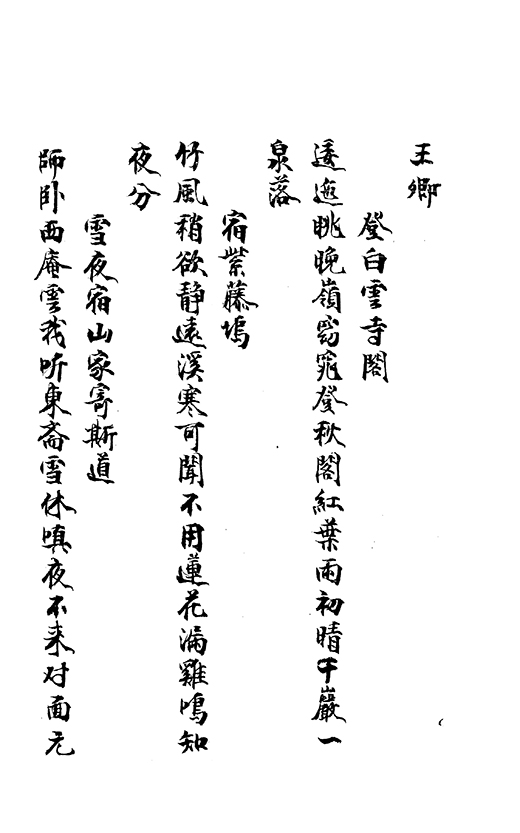 王卿
登白雲寺閣
逶迤眺晚嶺窈窕登秋閣紅葉雨初晴千巖一
泉落
宿紫藤塢
竹風稍欲静遠溪寒可聞不用蓮花漏雞鳴知
夜分
雪夜宿山家寄斯道
師卧西庵雲我听東斋雪休嗔夜不来对面无